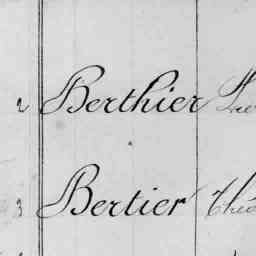 2 Berthier
3 Bertier